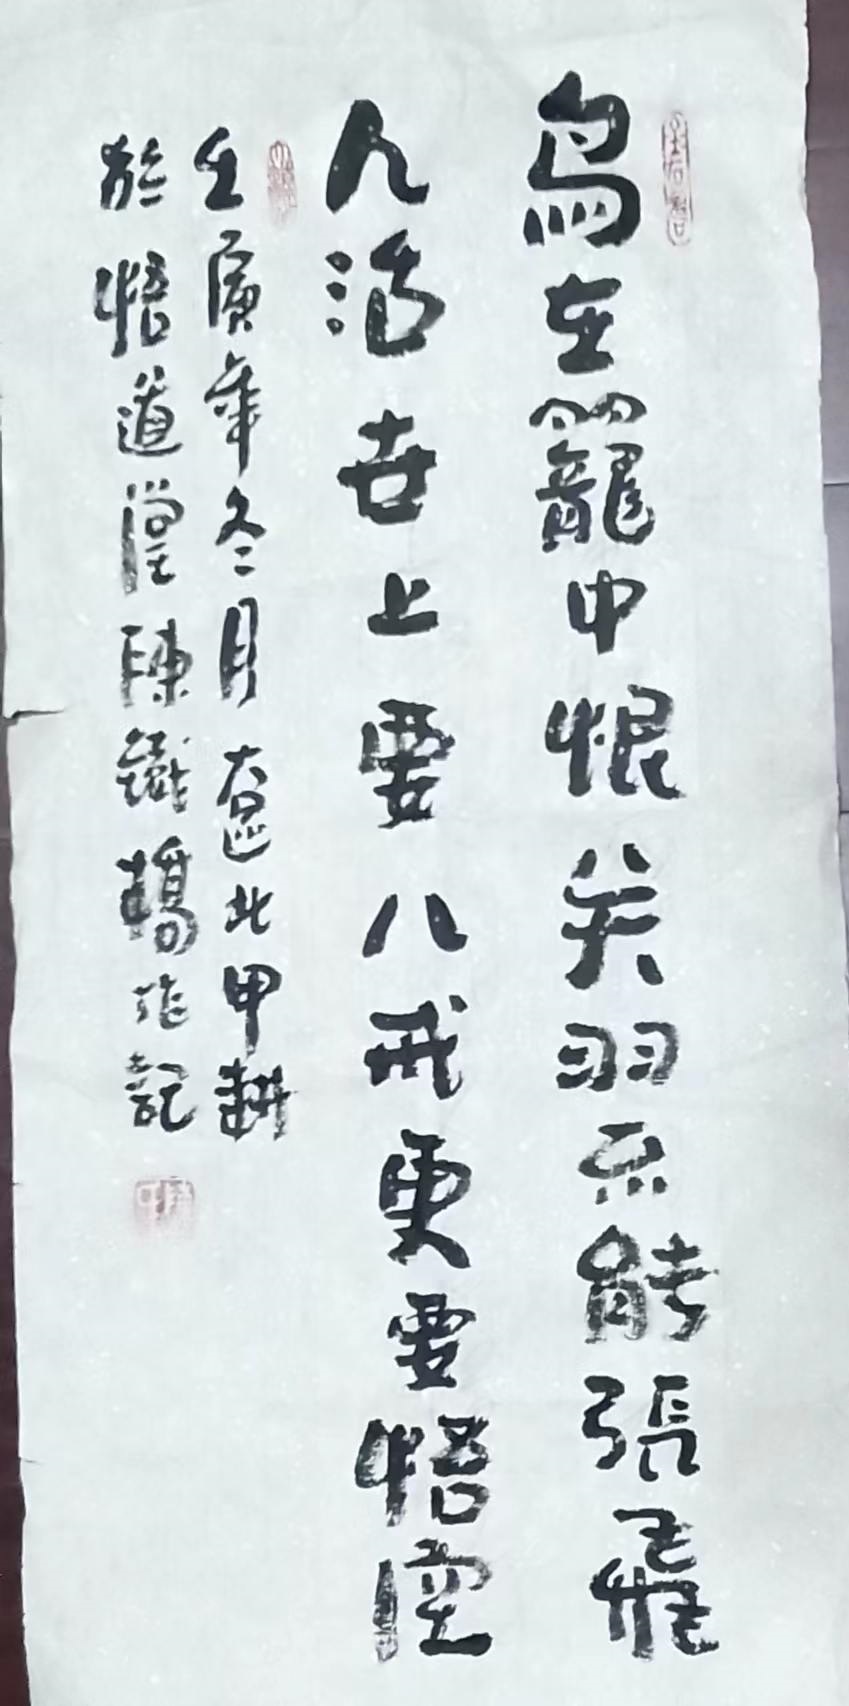 鸟在籠中恨关羽不能張飛
人活世上要八戒更要悟空
壬寅年冬月 北甲耕
於悟道堂陳鐵橋作記